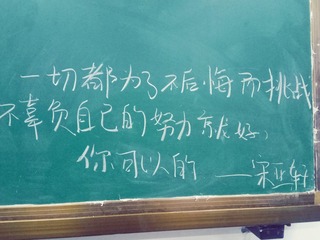 一切都为了不后悔而挑战
不辜负自己的努力就好,
你可以的 ——宋亚轩